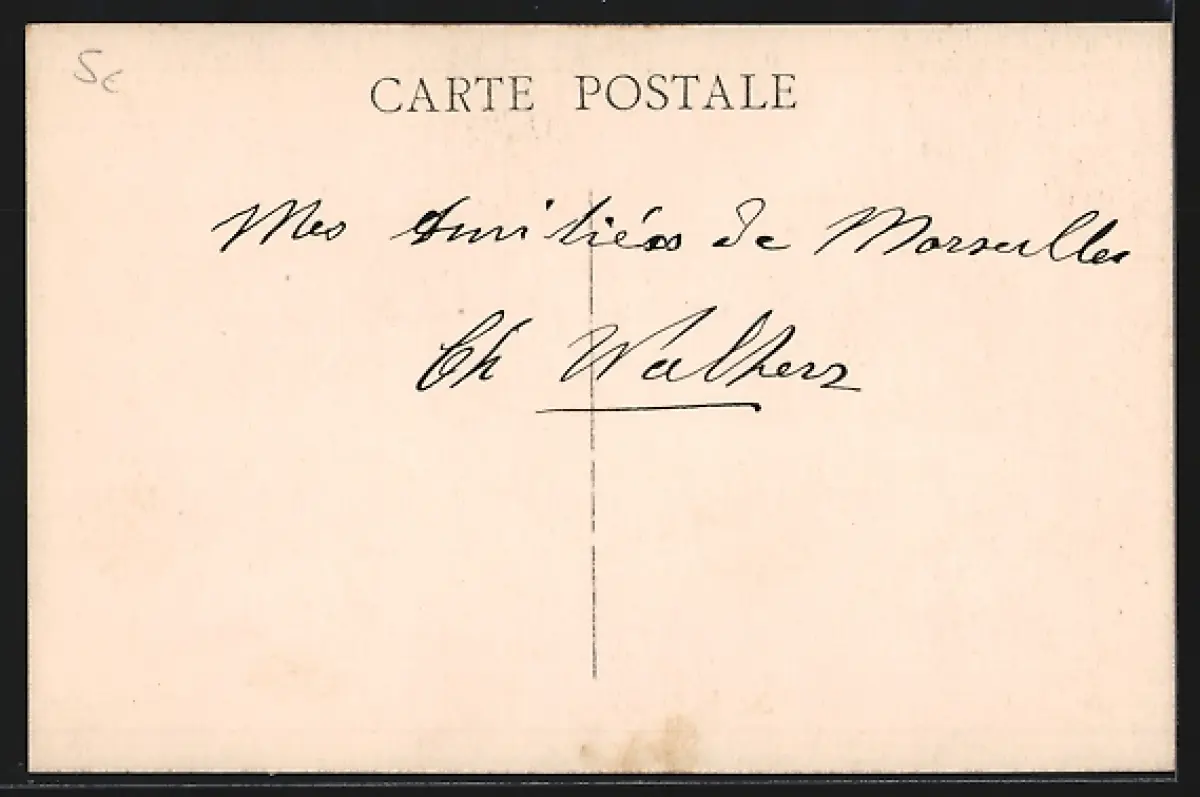 5c
CARTE POSTALE
Mes Amitiés de Marseilles
Ch Walherz